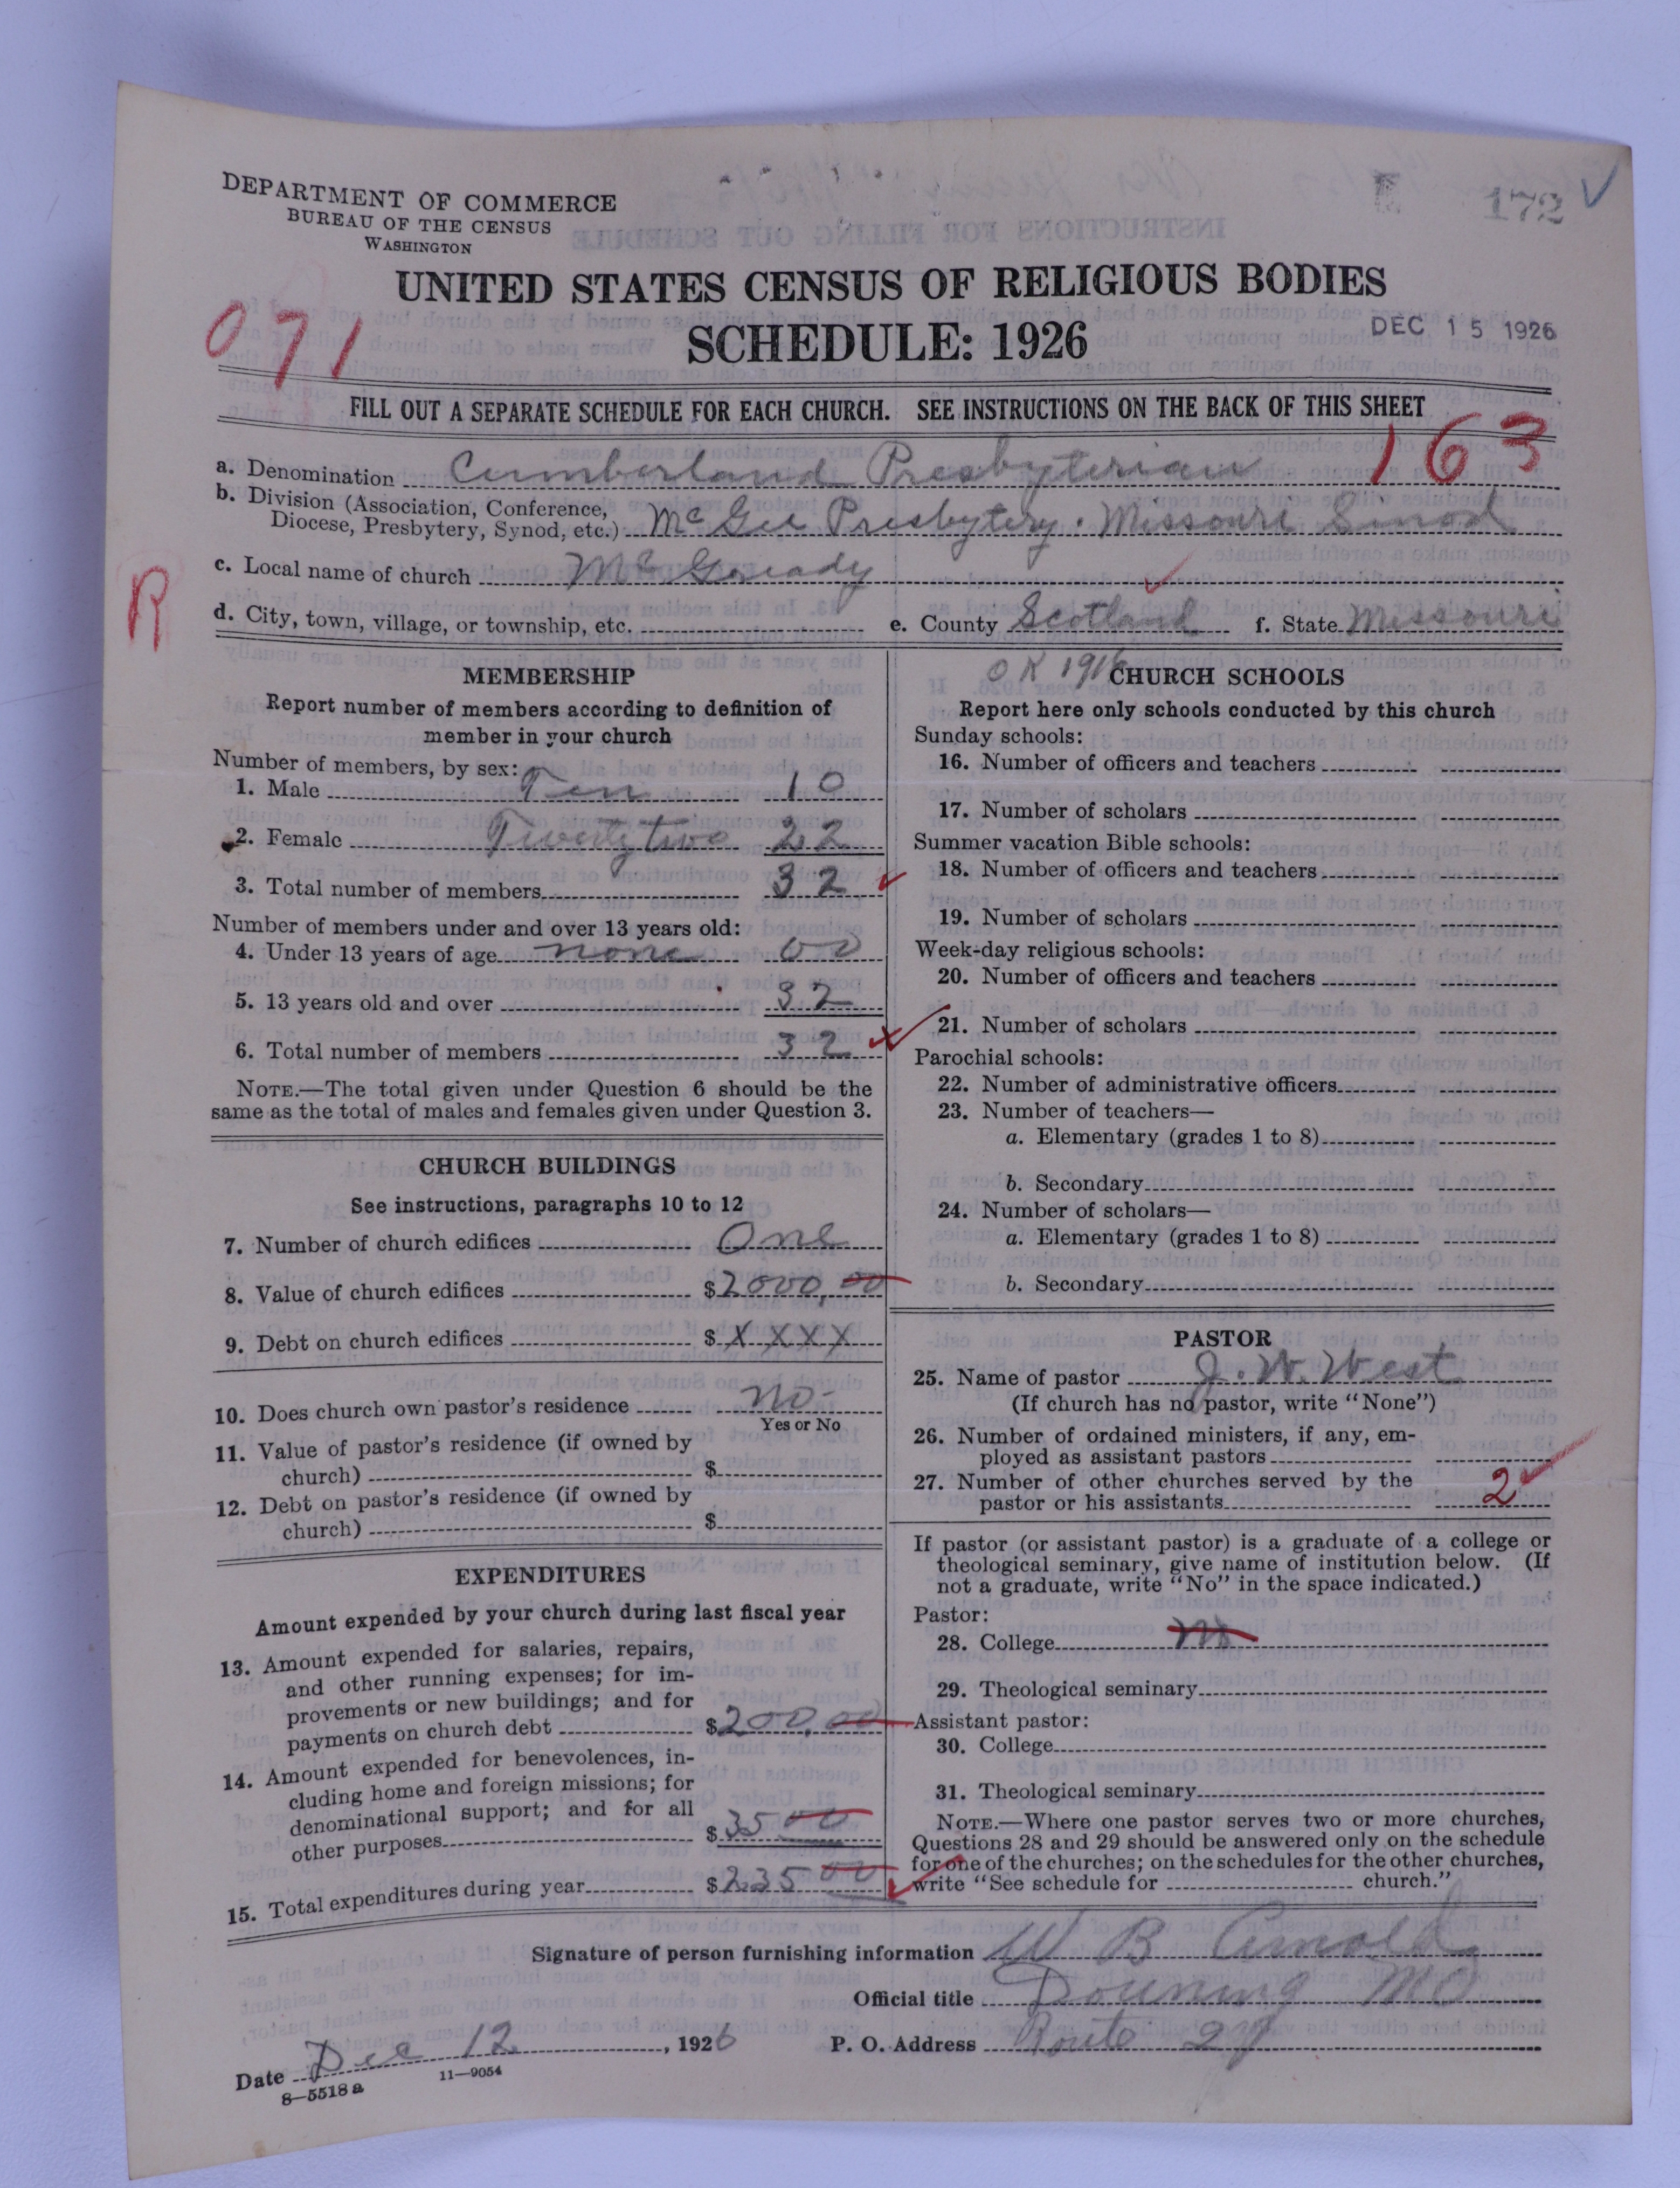 DEPARTMENT OF COMMERCE
BUREAU OF THE CENSUS
WASHINGTON
172
UNITED STATES CENSUS OF RELIGIOUS BODIES
SCHEDULE: 1926
DEC 15 1926
071
FILL OUT A SEPARATE SCHEDULE FOR EACH CHURCH. SEE INSTRUCTIONS ON THE BACK OF THIS SHEET
163
a. Denomination Cumberland Presbyterian
b. Division (Association, Conference,
Diocese, Presbytery, Synod, etc.) McGee Presbytery. Missouri Sinod
R
c. Local name of church
d. City, town, village, or township, etc. e. County Scotland f. State Missouri
MEMBERSHIP
Report number of members according to definition of
member in your church
Number of members, by sex:
1. Male Ten 10
2. Female Twenty two 22
3. Total number of members 32
Number of members under and over 13 years old:
4. Under 13 years of age none 00
5. 13 years old and over 32
6. Total number of members 32
NOTE.—The total given under Question 6 should be the
same as the total of males and females given under Question 3.
CHURCH BUILDINGS
See instructions, paragraphs 10 to 12
7. Number of church edifices One
8. Value of church edifices $2000,00
9. Debt on church edifices $XXXX
10. Does church own pastor's residence no-
Yes or No
11. Value of pastor's residence (if owned by
church) $
12. Debt on pastor's residence (if owned by
church) $
EXPENDITURES
Amount expended by your church during last fiscal year
13. Amount expended for salaries, repairs,
and other running expenses; for im-
provements or new buildings; and for
payments on church debt $200,00
14. Amount expended for benevolences, in-
cluding home and foreign missions; for
denominational support; and for all
other purposes $35 00
15. Total expenditures during year $235 00
OK 1916
CHURCH SCHOOLS
Report here only schools conducted by this church
Sunday schools:
16. Number of officers and teachers
17. Number of scholars
Summer vacation Bible schools:
18. Number of officers and teachers
19. Number of scholars
Week-day religious schools:
20. Number of officers and teachers
21. Number of scholars
Parochial schools:
22. Number of administrative officers
23. Number of teachers—
a. Elementary (grades 1 to 8)
b. Secondary
24. Number of scholars—
a. Elementary (grades 1 to 8)
b. Secondary
PASTOR
25. Name of pastor J. W. West
(If church has no pastor, write "None")
26. Number of ordained ministers, if any, em-
ployed as assistant pastors
27. Number of other churches served by the
pastor or his assistants 2
If pastor (or assistant pastor) is a graduate of a college or
theological seminary, give name of institution below. (If
not a graduate, write "No" in the space indicated.)
Pastor:
28. College no
29. Theological seminary
Assistant pastor:
30. College
31. Theological seminary
NOTE.—Where one pastor serves two or more churches,
Questions 28 and 29 should be answered only on the schedule
for one of the churches; on the schedules for the other churches,
write "See schedule for church."
Signature of person furnishing information W B Arnold
Official title Downing MO
Date Dec 12, 1926 P. O. Address Route 2
8—5518 a 11—9054